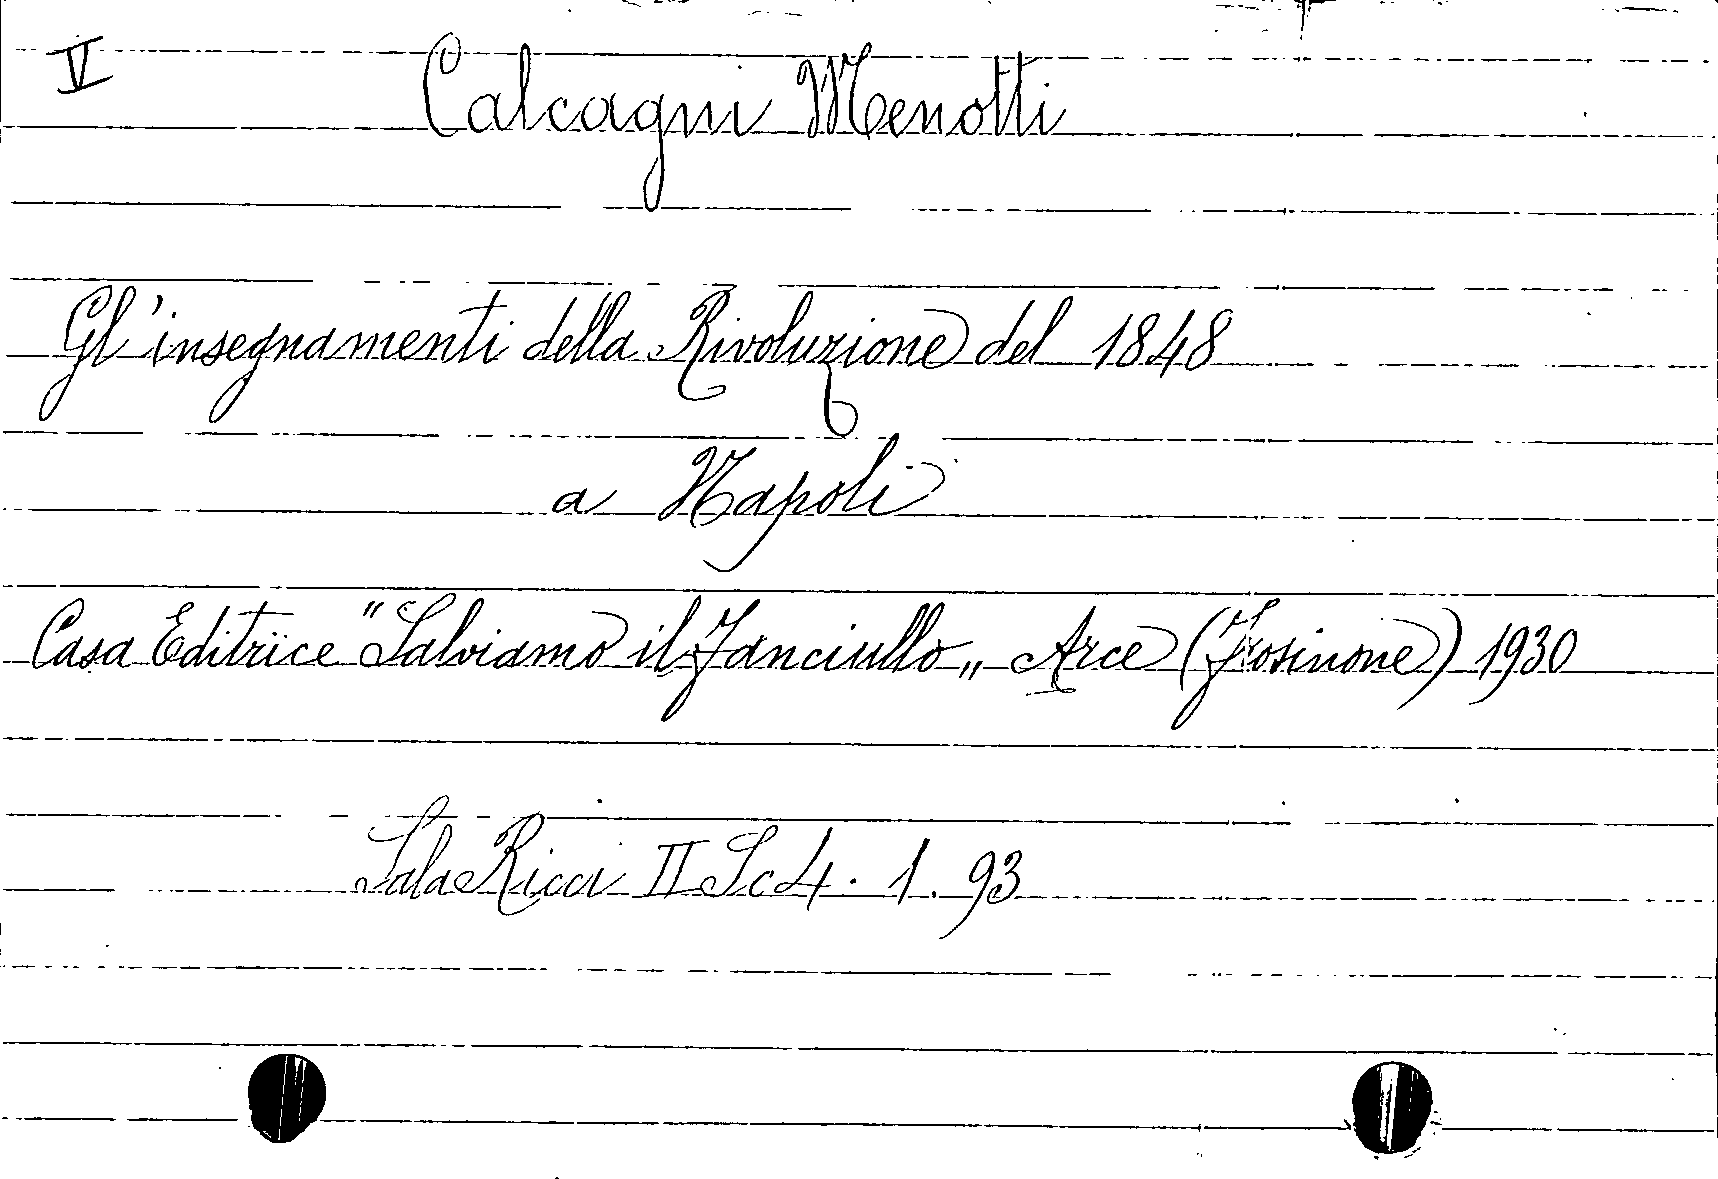 V
Calcagni Menotti
Gl'insegnamenti della Rivoluzione del 1848
a Napoli
Casa Editrice "Salviamo il Fanciullo„ Arce (Frosinone) 1930
Sala Ricci II Sc 4. 1. 93